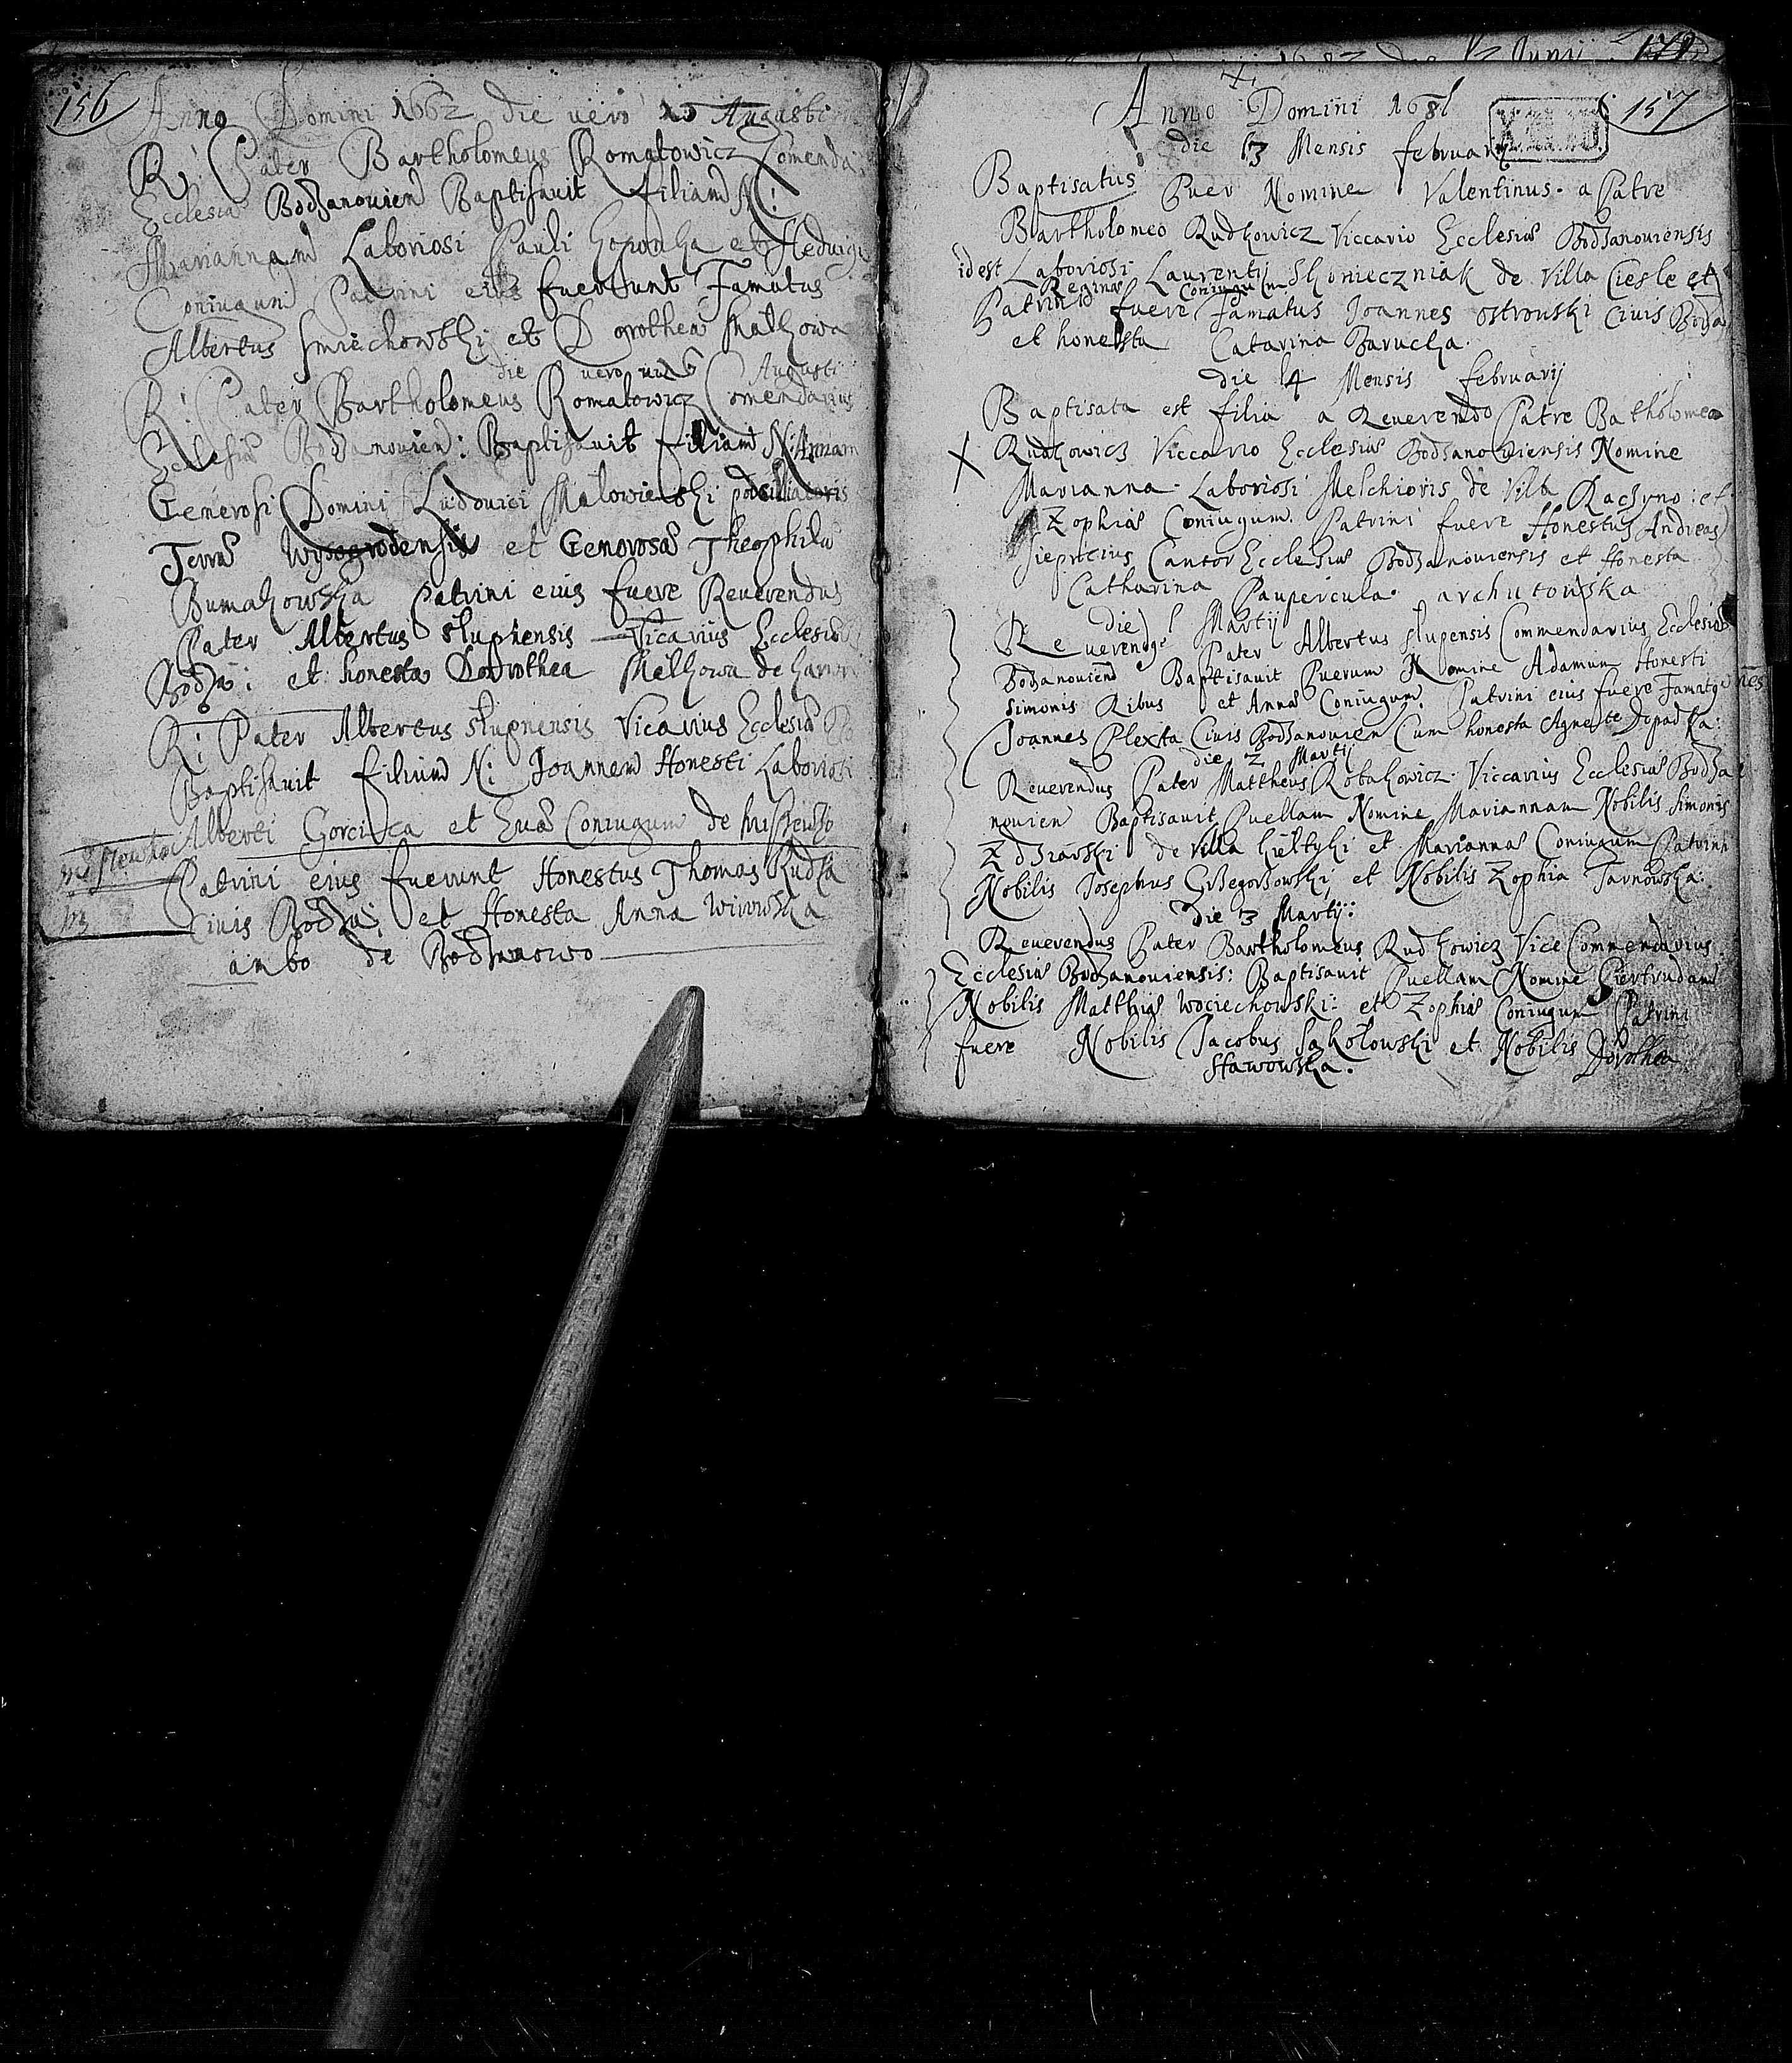 156
Anno Domini 1662 die vero 20 Augusti
R: Pater Bartholomeus Romatowicz Comenda:
Ecclesiæ Bodzanovien Baptisavit filiam N:
Mariannam Laboriosi Pauli et Hedvigi
Coniugum Patrini eius fuerunt Famatus
Albertus Smiechowski et Dorothea Malkowa
die vero Augusti
R: Pater Bartholomeus Romatowicz Comendarius
Ecclesiæ Bodzanovien: Baptisavit filiam N: Annam
Generosi Domini Ludovici Malowieski
Terræ Wysogrodensis et Generosæ Theophila
Bumakowska Patrini eius fuere Reverendus
Pater Albertus slupnensis Vicarius Ecclesiæ
Bodza: et honesta Dorothea Malkowa de
R: Pater Albertus slupnensis Vicarius Ecclesiæ Bo
Baptisavit filium N: Joannem Honesti Laboriosi
Alberti Gorcica et Evæ Coniugum de
Patrini eius fuerunt Honestus Thomas Rudka
Civis Bodza: et Honesta Anna
ambo de Bodzanowo
157
Anno Domini 1681
die 13 Mensis februarij
Baptisatus Puer Nomine Valentinus a Patre
Bartholomeo Rudkowicz Viccario Ecclesiæ Bodzanoviensis
id est Laboriosi Laurentij Skonieczniak de Villa Ciesle et
Reginæ Coniugum
Patrini fuere Famatus Joannes Ostrowski Civis Bodza
et honesta Catarina Barucka
die 14 Mensis februarij
Baptisata est filia a Reverendo Patre Batholomeo
X Rudkowicz Viccario Ecclesiæ Bodzanoviensis Nomine
Marianna Laboriosi Melchioris de Villa Raczyno: et
Zophiæ Coniugum. Patrini fuere Honestus Andreas
Cantor Ecclesiæ Bodzanoviensis et Honesta
Catharina Paupercula archutowska
die 1 Martij
Reverendꝰ Pater Albertus slupensis Commendarius Ecclesiæ
Bodzanovien Baptisavit Puerum Nomine Adamum Honesti
Simonis Ribus et Annæ Coniugum. Patrini eius fuere Famatꝰ
Joannes Plexta Civis Bodzanovien Cum honesta Agnete
die 2 Martij
Reverendus Pater Mattheus Robakowicz Viccarius Ecclesiæ Bodza
novien Baptisavit Puellam Nomine Mariannam Nobilis Simonis
Zdziarski de Villa Kieltyki et Mariannæ Coniugum Patrini
Nobilis Josephus Grzegorzowski, et Nobilis Zophia Tarnowska:
die 3 Martij:
Reverendus Pater Bartholomeus Rudkowicz Vice Commendarius
Ecclesiæ Bodzanoviensis: Baptisavit Puellam Nomine Giertrudam
Nobilis Matthiæ Wociechowski: et Zophiæ Coniugum Patrini
fuere Nobilis Jacobus Sokołowski et Nobilis Dorothea
Stawowska.